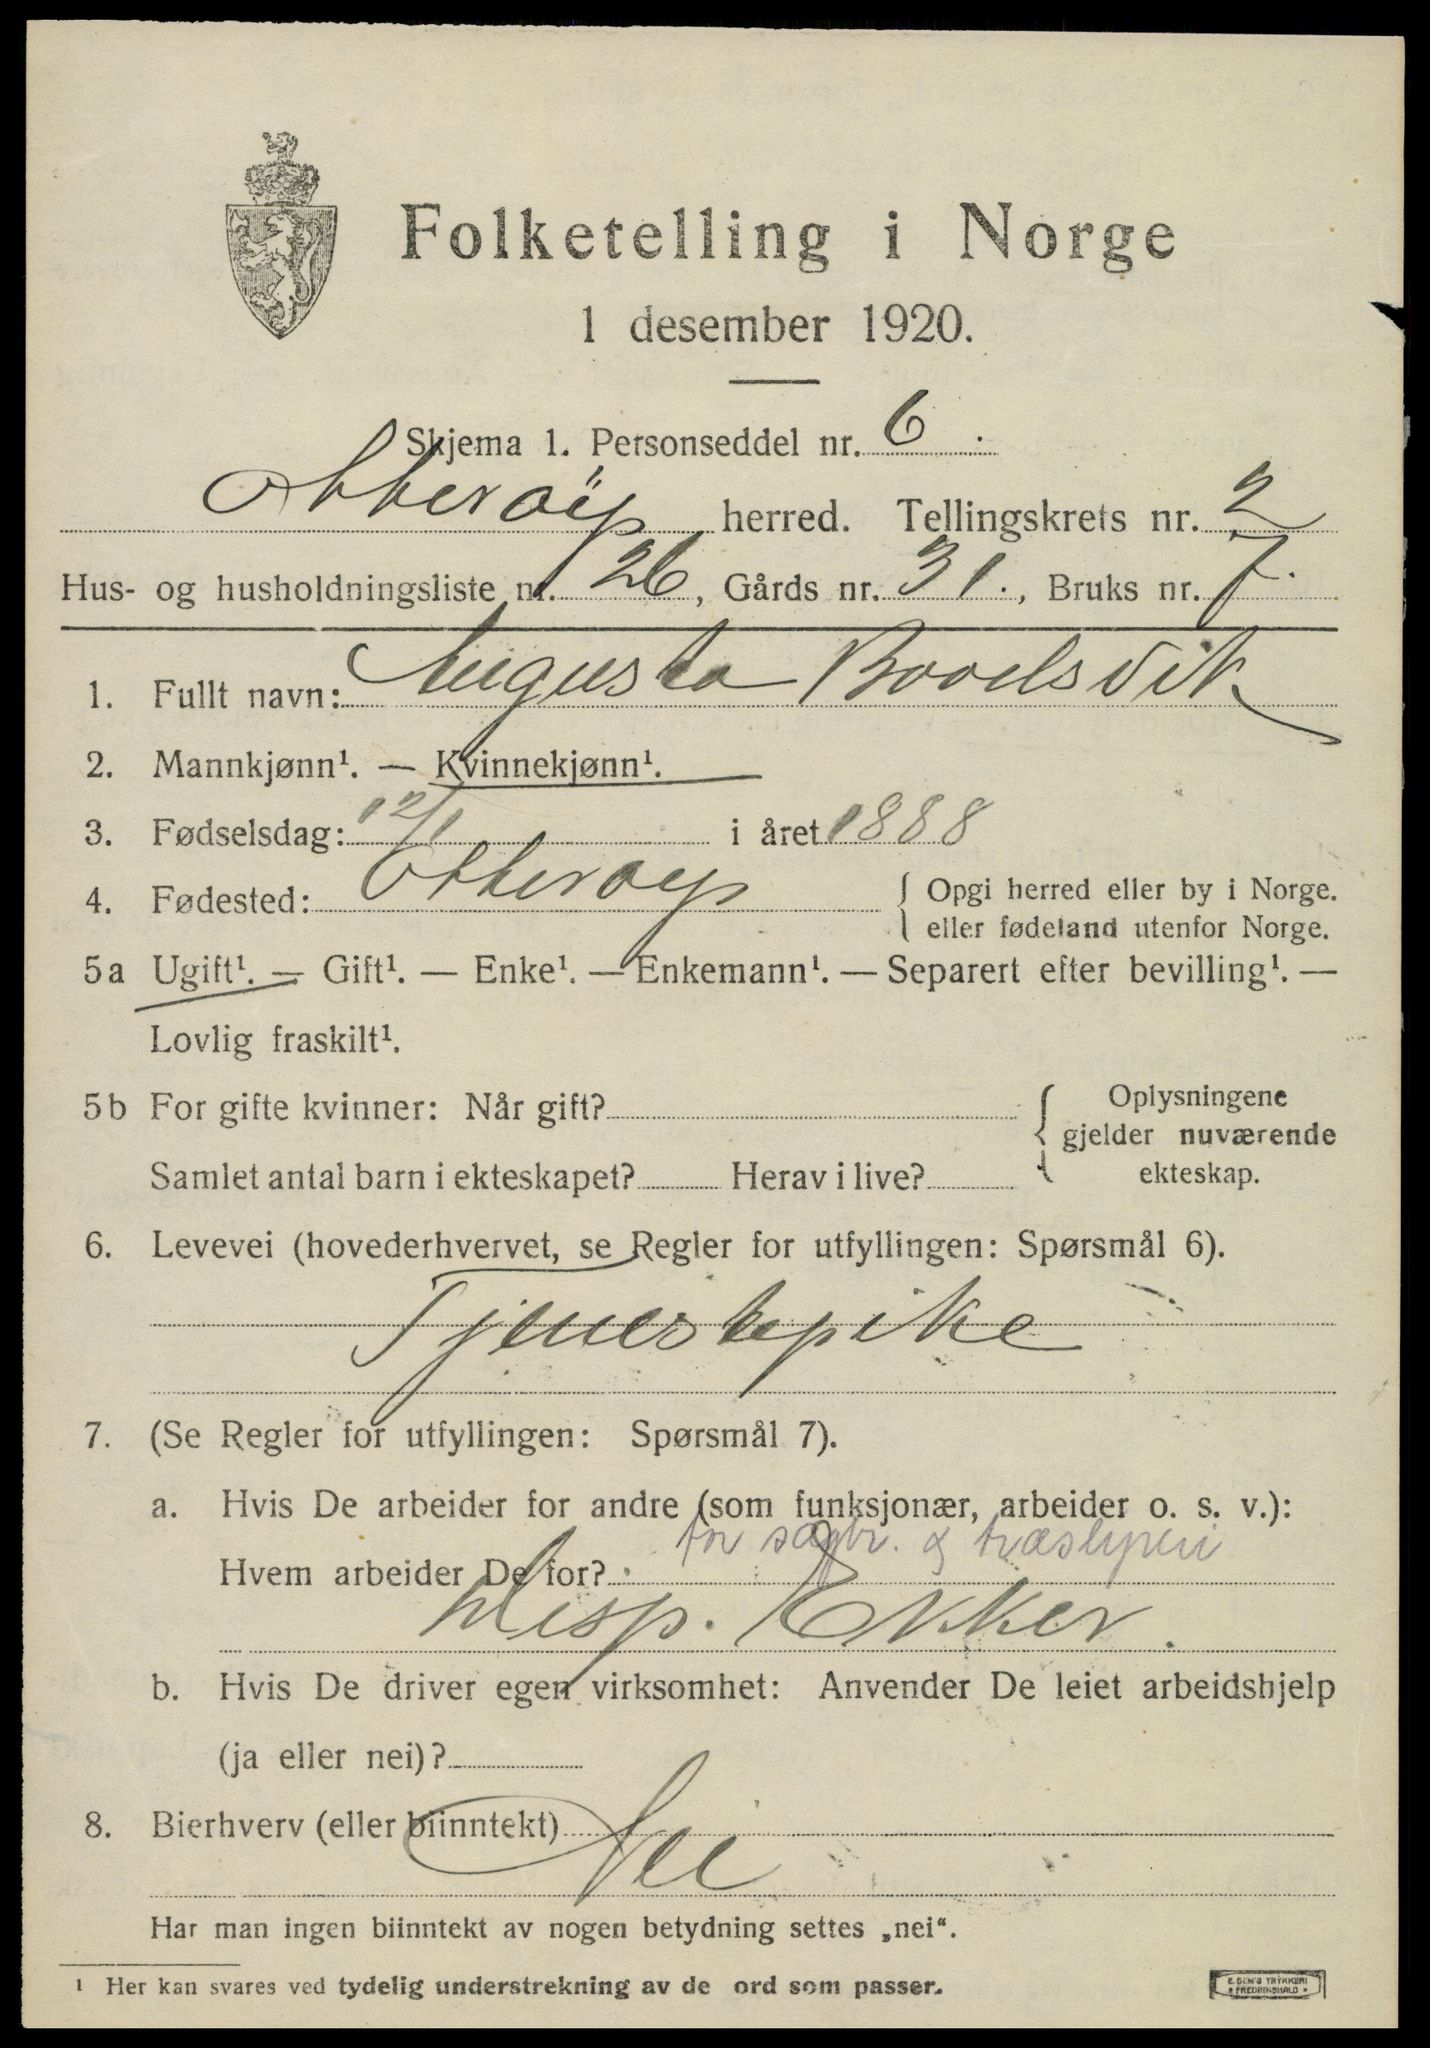 Folketelling i Norge
1 desember 1920.
Skjema 1. Personseddel nr. 6.
Otterøy herred. Tellingskrets nr. 2
Hus- og husholdningsliste nr. 26, Gårds nr. 31., Bruks nr. 7.
1. Fullt navn: Augusta Bodsvik
2. Mannkjønn¹. — Kvinnekjønn¹.
3. Fødselsdag: 12/1 i året 1888
4. Fødested: Otterøy { Opgi herred eller by i Norge.
eller fødeland utenfor Norge.
5a Ugift¹. — Gift¹. — Enke¹. — Enkemann¹. — Separert efter bevilling¹. —
Lovlig fraskilt¹.
5b For gifte kvinner: Når gift? { Oplysningene
gjelder nuværende
Samlet antal barn i ekteskapet? Herav i live? ekteskap.
6. Levevei (hovederhvervet, se Regler for utfyllingen: Spørsmål 6).
Tjenestepike
7. (Se Regler for utfyllingen: Spørsmål 7).
a. Hvis De arbeider for andre (som funksjonær, arbeider o. s. v.):
for sagbr. & træsliperi
Hvem arbeider De for?
Disp. Ekker.
b. Hvis De driver egen virksomhet: Anvender De leiet arbeidshjelp
(ja eller nei)?
8. Bierhverv (eller biinntekt) Nei
Har man ingen biinntekt av nogen betydning settes „nei“.
¹ Her kan svares ved tydelig understrekning av de ord som passer.
E. SEM'S TRYKKERI
FREDRIKSHALD